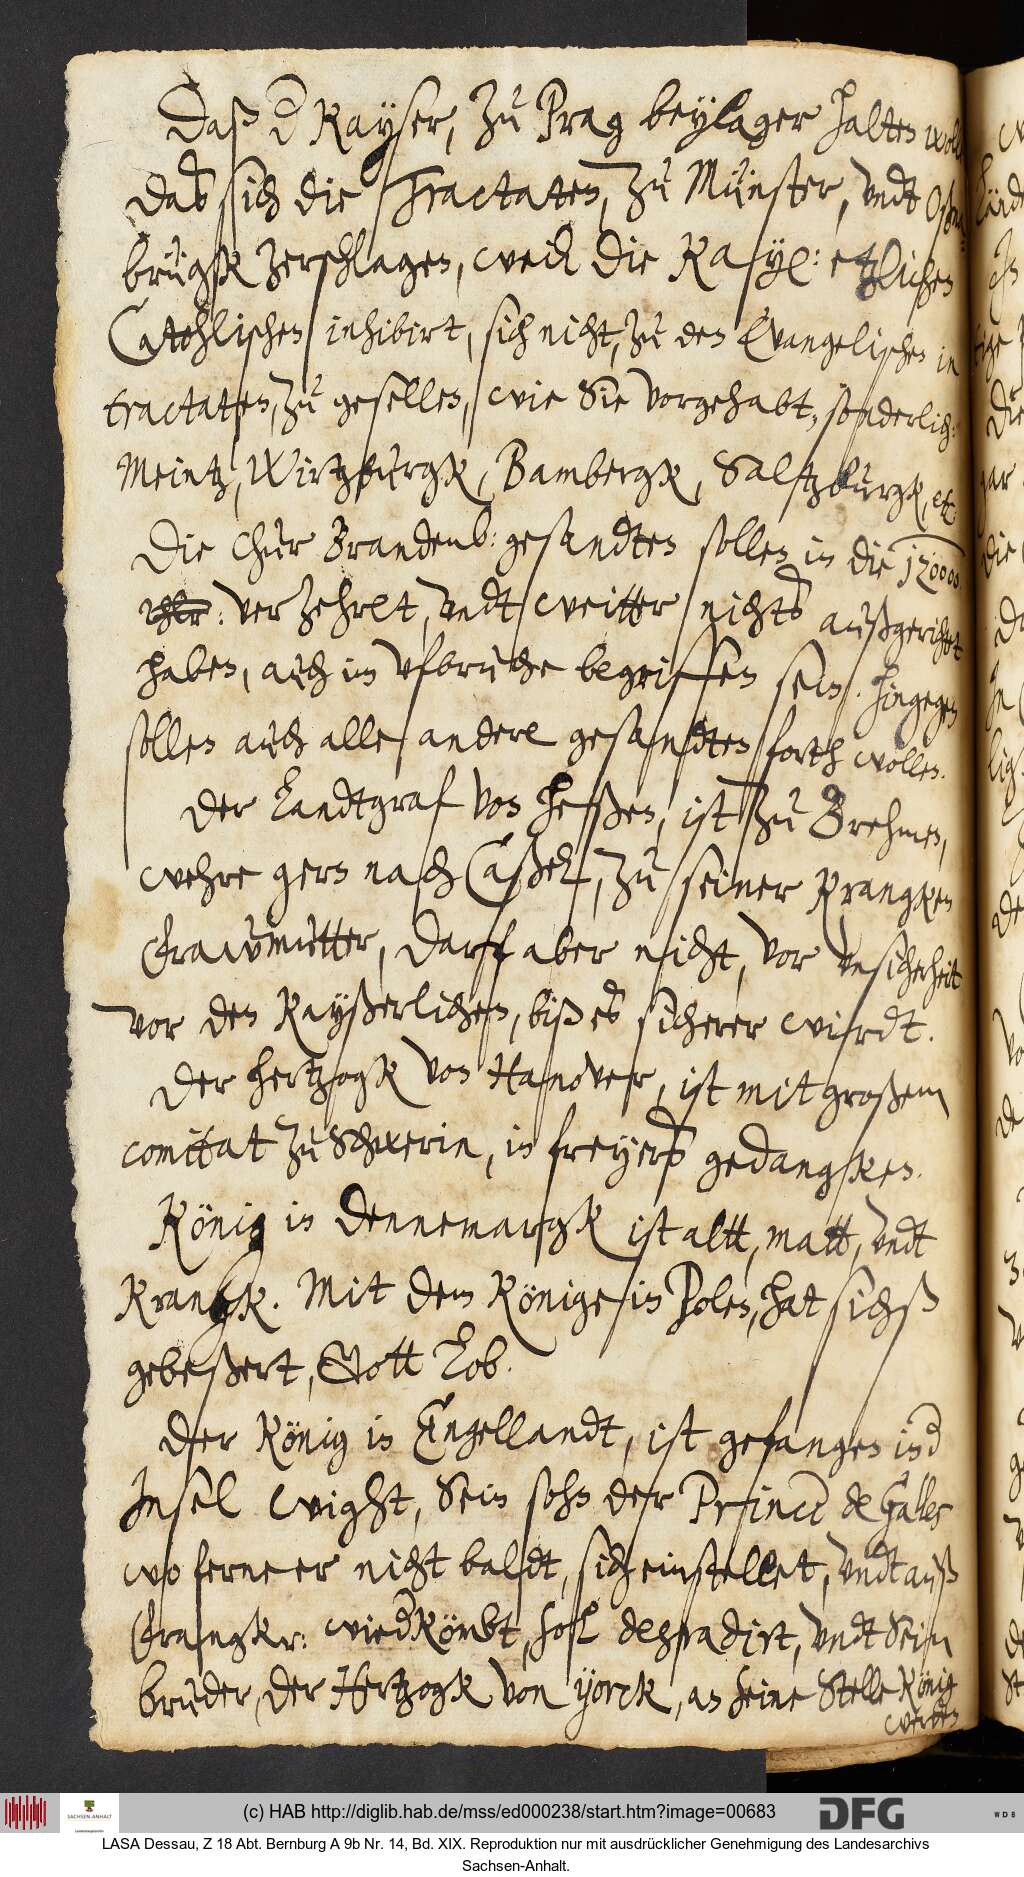 Daß d Kayser, zu Prag beylager halten woll
Das sich die Tractaten, zu Münster, undt Oßna=
brügk zerschlagen, weil die Kayl: etzlichen
Catohlischen inhibirt, sich nicht, zu den Evangelischen in
tractaten, zu gesellen, wie Sie vorgehabt, sonderlich:
Meintz, Wirtzburgk, Bambergk, Saltzburgk, etc
Die Chur Brandenb: gesandten sollen in die 120000
Thlr: verzehret, undt weitter nichts außgerichtet
haben, auch im ufbruche begriffen sein. Hingegen
sollen auch alle andere gesandten forth wollen.
Der Landtgraf von Heßen, ist zu Brehmen,
wehre gern nach Caßel, zu seiner Krangken
Frawmutter, darf aber nicht, vor unsicherheit
vor den Kayßerlichen, biß es sicherer wirdt.
Der Hertzogk von Hanover, ist mit großem
comittat zu Schwerin, in freyers gedangken.
König in Dennemargk ist altt, matt, undt
Krangk. Mit dem Könige in Polen, hat sichß
gebeßert, Gott Lob.
Der König in Engellandt, ist gefangen in d
Insel Wight, Sein sohn der Prince de Galles
wo ferne er nicht baldt, sich einstellet, undt auß
Frangkr: wied kömbt, soll degradirt, undt Sein
bruder der Hertzogk von Yorck, an seine Stelle König
werden
(c) HAB http://diglib.hab.de/mss/ed000238/start.htm?image=00683
SACHSEN-ANHALT
DFG
W D B
LASA Dessau, Z 18 Abt. Bernburg A 9b Nr. 14, Bd. XIX. Reproduktion nur mit ausdrücklicher Genehmigung des Landesarchivs
Sachsen-Anhalt.